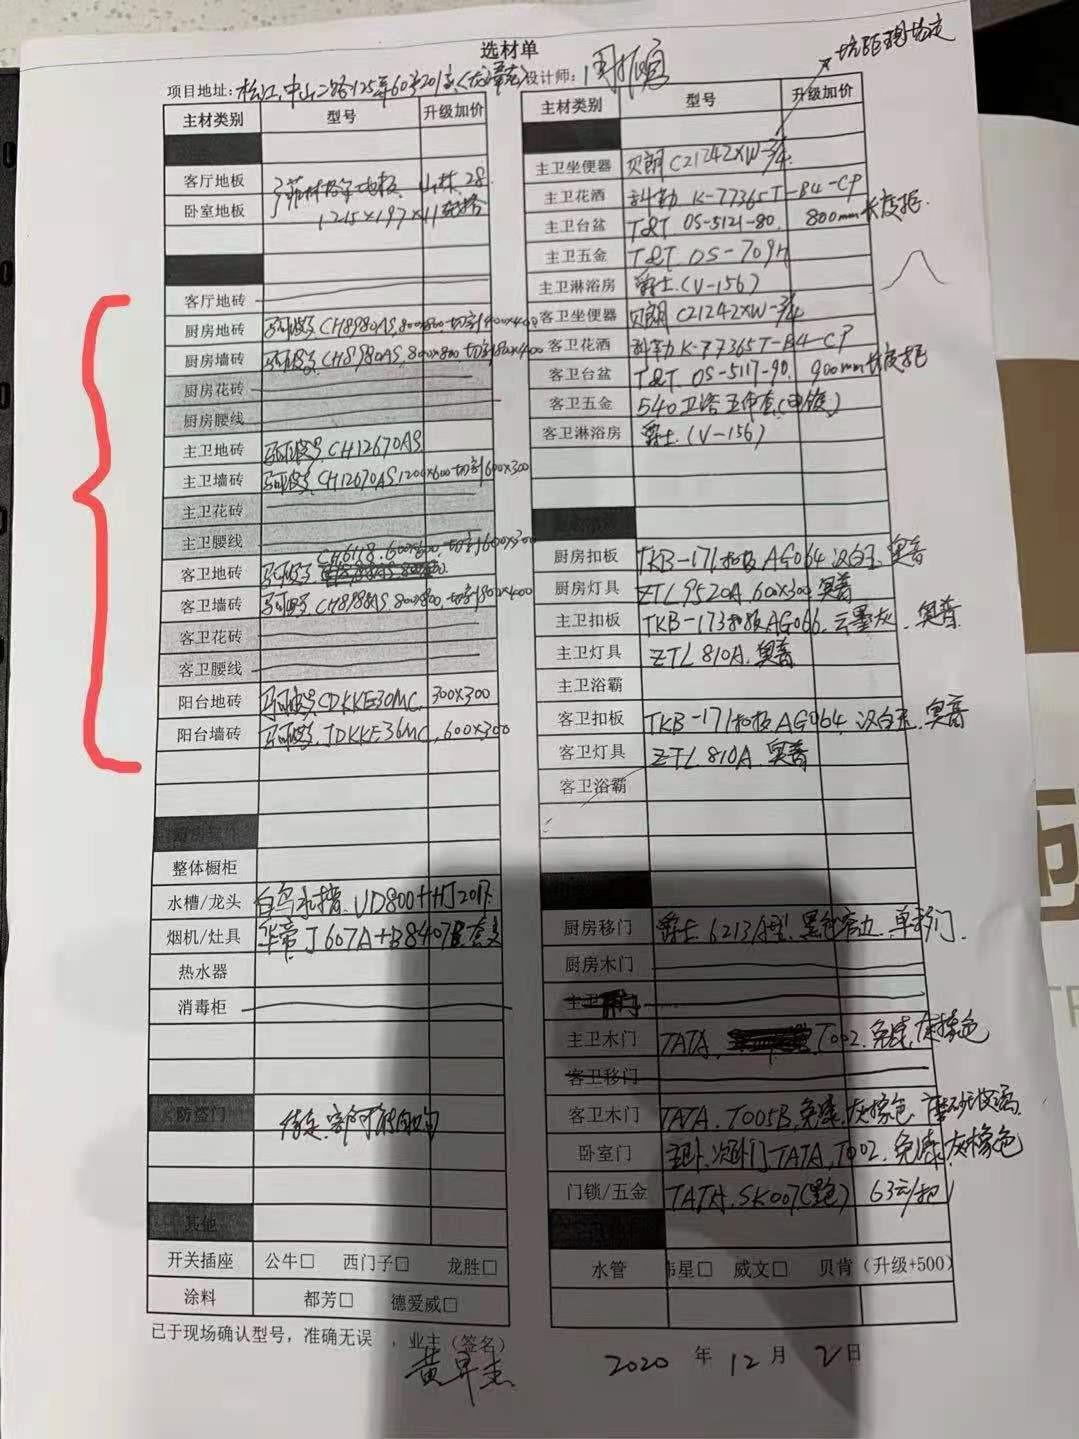 选材单
项目地址: 松江.中山二路125弄60号201室 设计师:
坑距现场定
主材类别 型号 升级加价
客厅地板 菲林格尔地板
卧室地板 1215×197×11
客厅地砖
厨房地砖 马可波罗 CH8980AS 800×800 切割400×400
厨房墙砖 马可波罗 CH8980AS 800×800 切割800×400
厨房花砖
厨房腰线
主卫地砖 马可波罗 CH12670AS
主卫墙砖 马可波罗 CH12670AS 1200×600 切割600×300
主卫花砖
主卫腰线
CH6118.600×600.切割600×300
客卫地砖 马可波罗
客卫墙砖 马可波罗 800×800 切割
客卫花砖
客卫腰线
阳台地砖 马可波罗 CDKKE30MC. 300×300
阳台墙砖 马可波罗 JDKKE36MC, 600×300
整体橱柜
水槽/龙头 白鸟水槽. UD800+HJ2017
烟机/灶具 华帝 J607A+B8407B 套餐
热水器
消毒柜
防盗门 待定.
其他
开关插座 公牛□ 西门子□ 龙胜□
涂料 都芳□ 德爱威□
主材类别 型号 升级加价
主卫坐便器 贝朗 C21242XW-3/4
主卫花洒 科勒 K-77365T-B4-CP
主卫台盆 T&T. OS-5121-80. 800mm长度
主卫五金 T&T. OS-709
主卫淋浴房 爵士.(V-156)
客卫坐便器 贝朗 C21242XW-3/4
客卫花洒 科勒 K-77365T-B4-CP
客卫台盆 T&T. OS-5117-90. 900mm长度
客卫五金 540卫浴五件套(电镀)
客卫淋浴房 爵士.(V-156)
厨房扣板 TKB-171扣板AG064.汉白玉.奥普
厨房灯具 ZTL9520A.600×300.奥普
主卫扣板 TKB-173扣板AG066.云墨灰.奥普
主卫灯具 ZTL810A.奥普
主卫浴霸
客卫扣板 TKB-171扣板AG064.汉白玉.奥普
客卫灯具 ZTL.810A.奥普
客卫浴霸
厨房移门 爵士.6213A型.黑色窄边.单移门.
厨房木门
主卫移门
主卫木门 TATA. T002.免漆.灰橡色
客卫移门
客卫木门 TATA.T005B.免漆.灰橡色.磨砂玻璃.
卧室门 主卧.次卧门TATA.T002.免漆.灰橡色
门锁/五金 TATA.SK007(黑色) 63元/把
水管 伟星□ 威文□ 贝肯(升级+500)
已于现场确认型号,准确无误 ,业主(签名)
2020 年 12 月 2 日